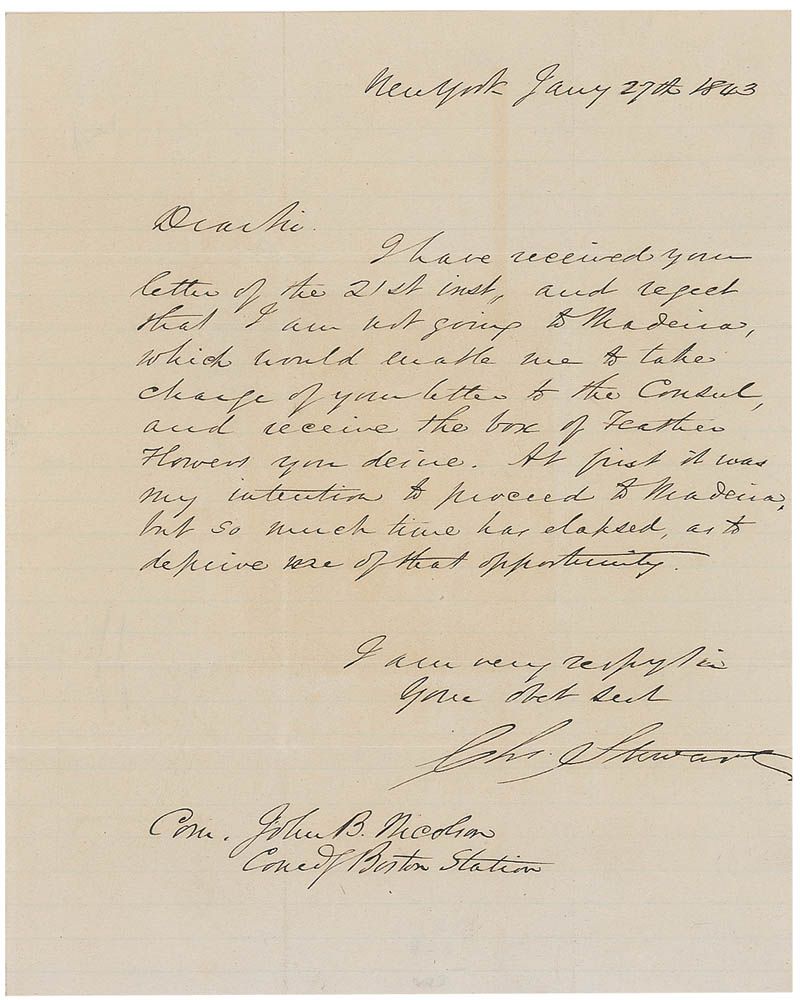 New York Jany 27th 1843
Dear Sir.
I have received your
letter of the 21st inst, and regret
that I am not going to Madeira,
which would enable me to take
charge of your letter to the Consul,
and receive the box of Feather
Flowers you desire. At first it was
my intention to proceed to Madeira,
but so much time has elapsed, as to
deprive me of that opportunity.
I am very respy Sir
Your obet sert
Chs. Stewart
Com. John B. Nicolson
Comdg Boston Station